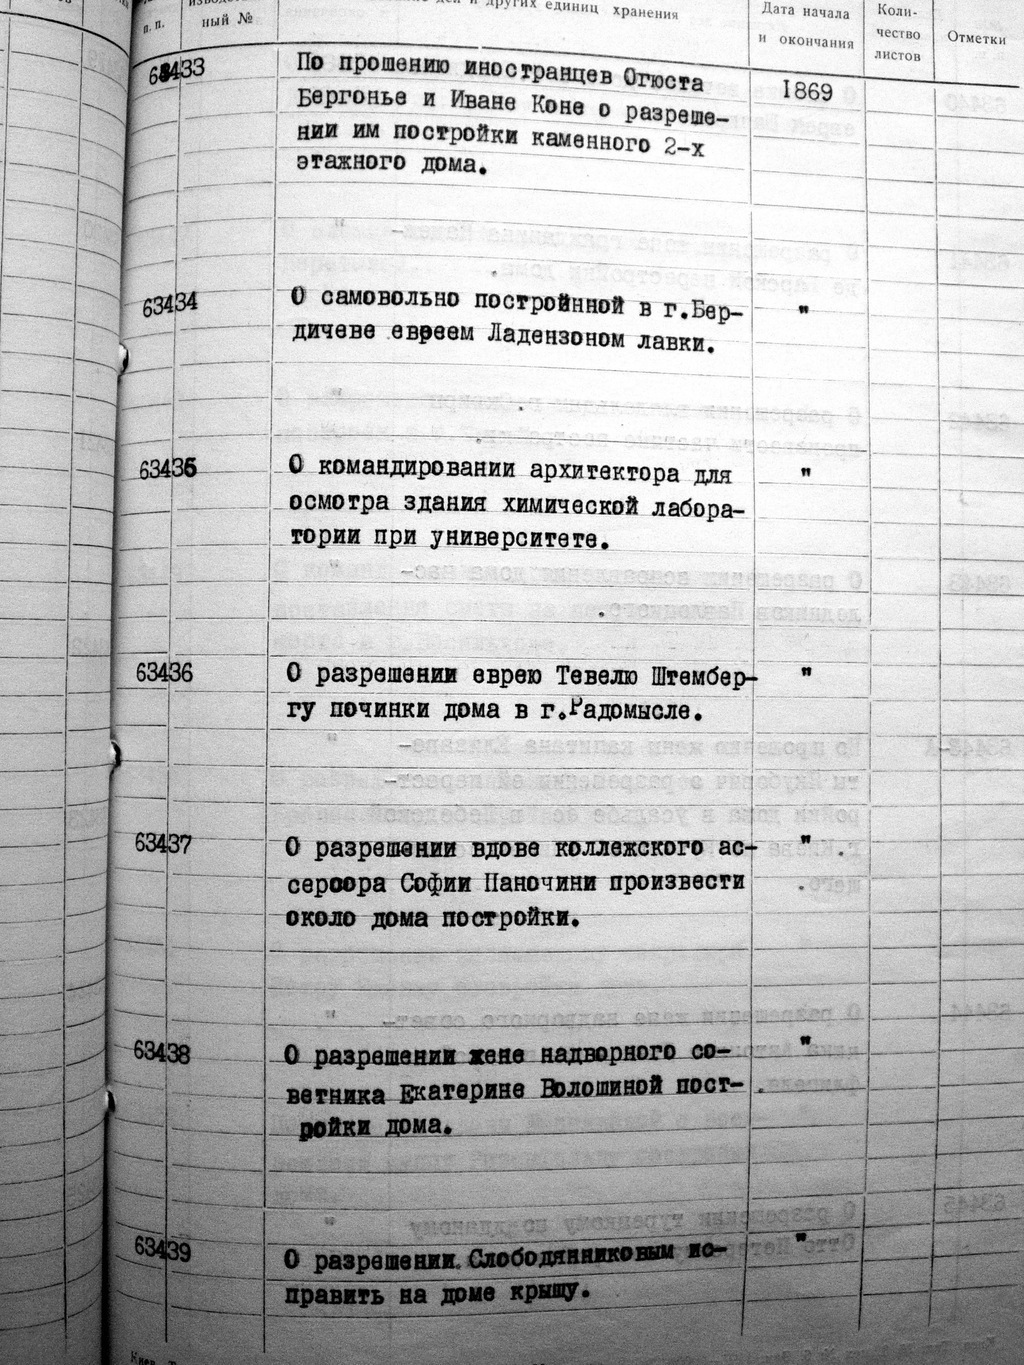 п.п.
ный №
и других единиц хранения
Дата начала
и окончания
Коли-
чество
листов
Отметки
63433 По прошению иностранцев Огюста 1869
Бергонье и Иване Коне о разреше-
нии им постройки каменного 2-х
этажного дома.
63434 О самовольно постройнной в г.Бер- "
дичеве евреем Ладензоном лавки.
63435 О командировании архитектора для "
осмотра здания химической лабора-
тории при университете.
63436 О разрешении еврею Тевелю Штембер- "
гу починки дома в г.Радомысле.
63437 О разрешении вдове коллежского ас- "
сероора Софии Паночини произвести
около дома постройки.
63438 О разрешении жене надворного со- "
ветника Екатерине Волошиной пост-
ройки дома.
63439 О разрешении Слободянниковым ис- "
править на доме крышу.